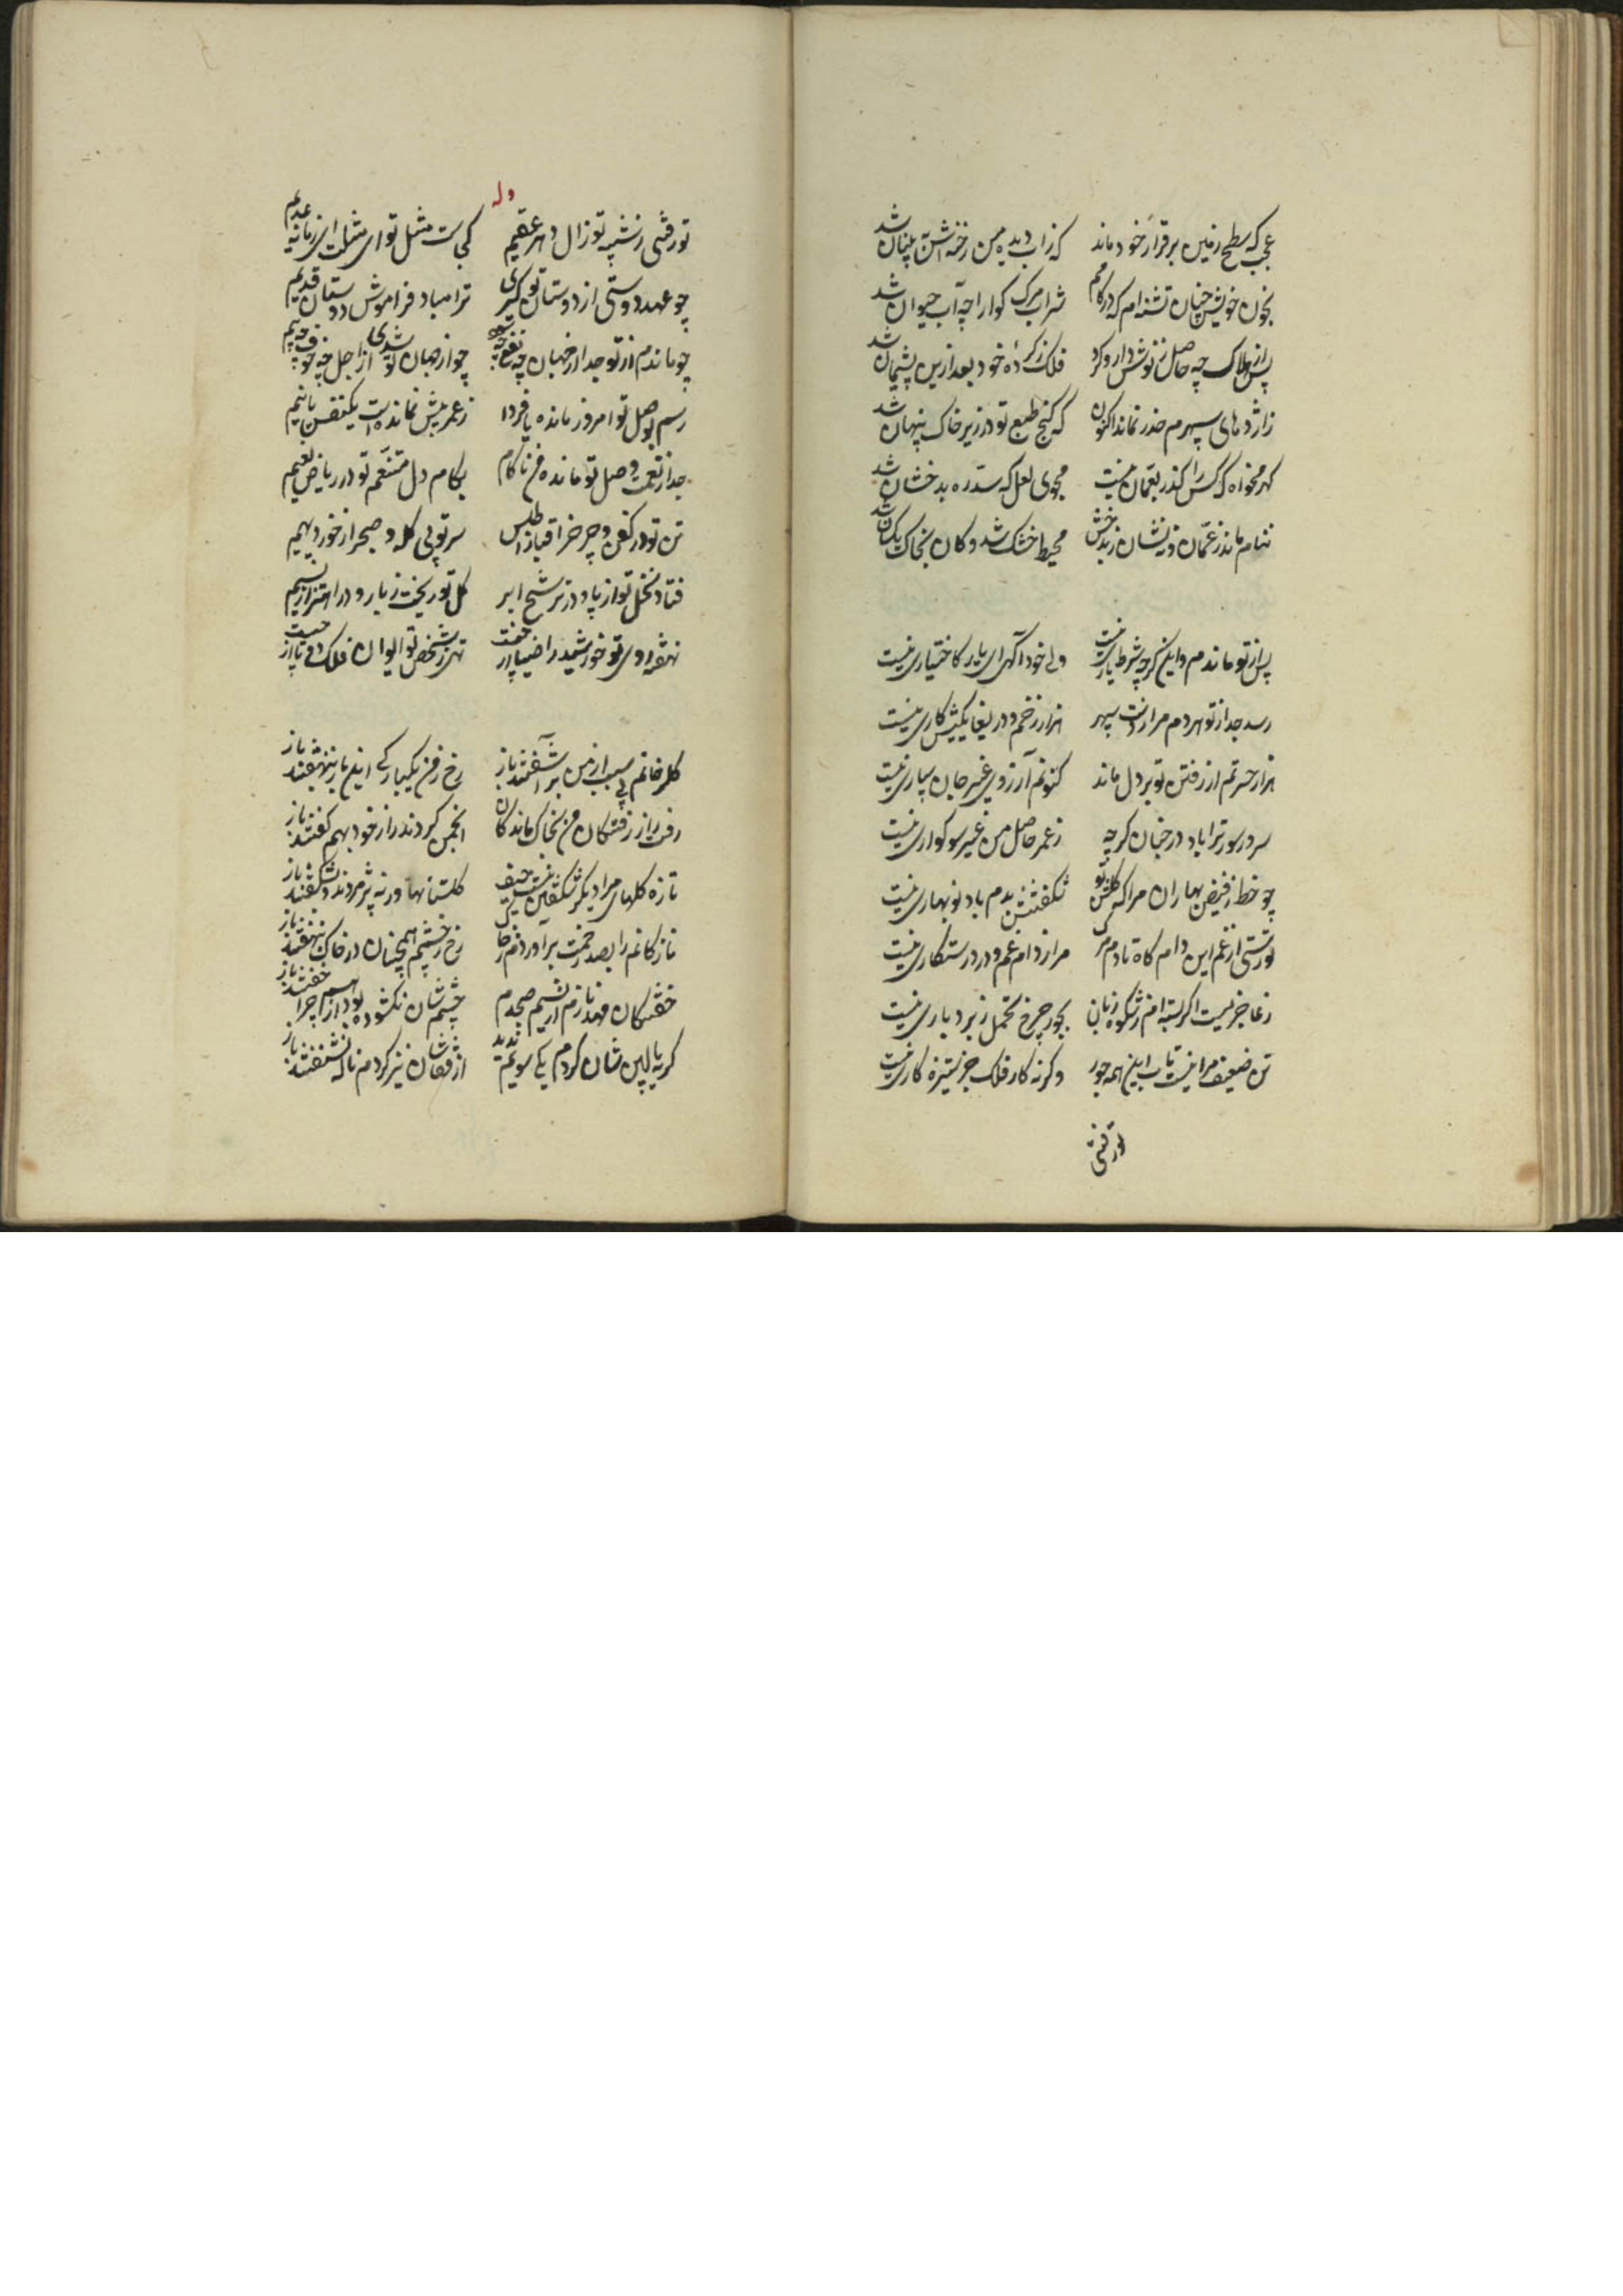 عجب که سطح زمین برقرار خود ماند که زاب دیده من رخنه اش به بنیان شد
بخون خویش چنان تشنه ام که در کامم شراب مرک کوارا چه آب حیوان شد
پس از هلاک چه حاصل ز نوش دارو کرد فلک ز کردهٔ خود بعد ازین پشیمان شد
ز اژدهای سپهرم حذر نماند اکنون که کنج طبع تو در زیر خاک پنهان شد
کهر مخواه که کس را کذر بعمان نیست مجوی لعل که سد ره بدخشان شد
نه نام ماند ز عمان و نه نشان ز بدخش محیط خشک شد و کان بخاک یکسان شد
پس از تو ماندم و این کرچه شرط یاری نیست ولی خود آکهی ای یار کاختیاری نیست
رسد جدا ز تو هردم مرا ز دست سپهر هزار زخم و دریغا یکیش کاری نیست
هزار حسرتم از رفتن تو بر دل ماند کنونم آرزوی غیر جان سپاری نیست
سرور سور ترا باد در جنان کرچه ز عمر حاصل من غیر سوکواری نیست
چو خط ز فیض بهاران مرا که کلشن تو شکفتنش بدم باد نوبهاری نیست
تو رستی از غم این دامکاه تا دم مرک مرا ز دام غم و درد رستکاری نیست
ز عاجزیست اکر بسته ام ز شکوه زبان بجور چرخ تحمل ز بردباری نیست
تن ضعیف مرا نیست تاب این همه جور وکرنه کار فلک جز ستیزه کاری نیست
تو رفتی
وله
تو رفتی ز شبیه تو زال دهر عقیم کجاست مثل تو ای مثلت ای زمانه عدیم
چو عهد دوستی از دوستان نو کیری ترا مباد فراموش دوستان قدیم
چو ماندم از تو جدا از جهان چه نفع چه سود چو از جهان تو شدی از اجل چه خوف چه بیم
رسم بوصل تو امروز مانده یا فردا ز عمر بیش نمانده است یکنفس یا نیم
جدا ز نعمت وصل تو مانده من ناکام بکام دل متنعم تو در ریاض نعیم
تن تو در کفن و چرخ را قبا ز اطلس سر تو بی کله و صبح را ز خور دیهیم
فتاد نخل تو از پا و در ترشح ابر کل تو ریخت ز بار و در اهتزاز نسیم
نهفته روی تو خورشید را ضیا از چیست تهی ز شخص تو ایوان فلک بپا از
کلرخانم بی سبب از من برآشفتند باز رخ ز من یکبارکی این بار بنهفتند باز
رفت راز رفتکان من بخاک ماندکان انجمن کردند راز خود بهم کفتند باز
تازه کلهای مرا دیکر شکفتن نیست حیف کلستانها ورنه پژمردند و بشکفتند باز
نازکانم را بصد زحمت برآوردم ز خاک رخ ز چشمم همچنان در خاک بنهفتند باز
خفتکان مهد نازم از نسیم صبحدم چشمشان نکشوده بود از هم چرا خفتند باز
کریه بالین شان کردم یکی سویم ندید از فغانشان نیز کردم ناله نشنفتند باز